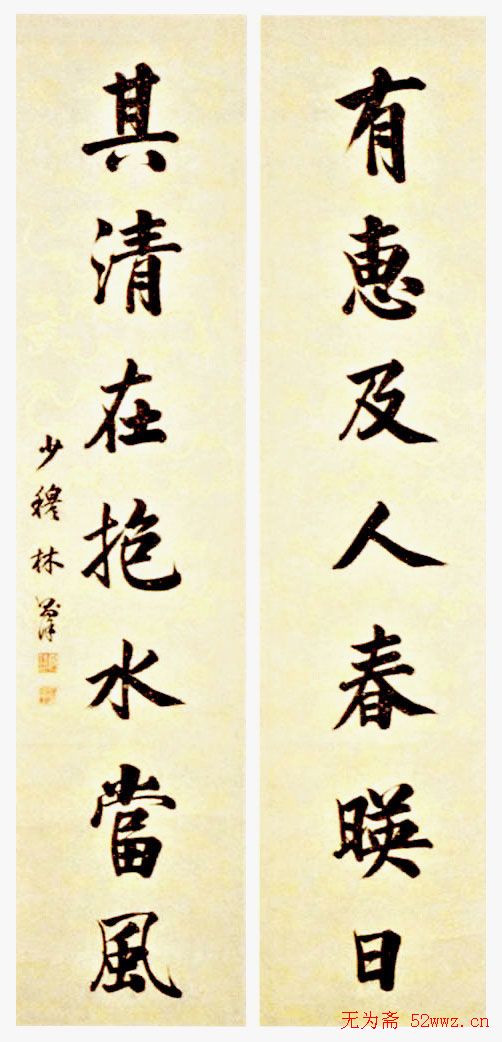 有惠及人春暎日
其清在抱水當風
少穆林則徐
无为斋 52wwz.cn